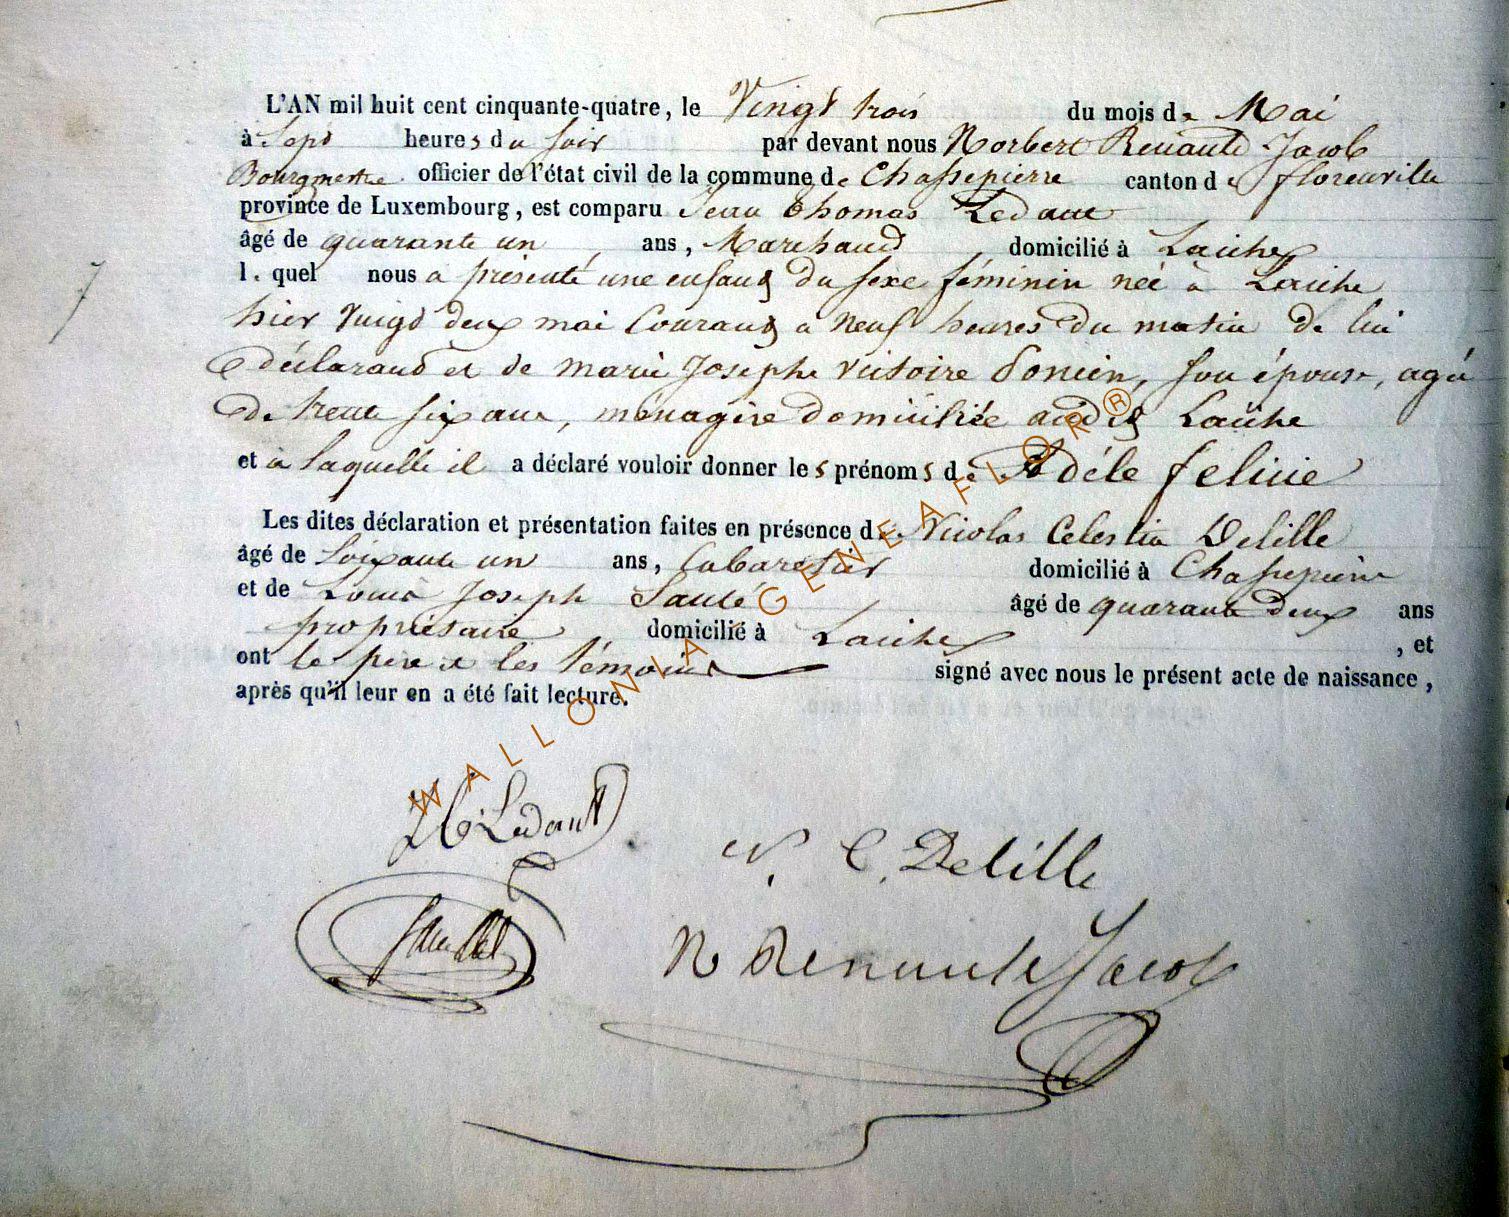 L'AN mil huit cent cinquante-quatre, le Vingt trois du mois de Mai
à Sept heures du soir par devant nous Norbert Renauld Jacob
Bourgmestre officier de l'état civil de la commune de Chassepierre canton de florenville
province de Luxembourg, est comparu Jean thomas Ledant
âgé de quarante un ans, Marchand domicilié à Laiche
l. quel nous a présenté une enfant du sexe féminin née à Laiche
hier vingt deux mai Courant a neuf heures du matin de lui
déclarant et de marie Joseph victoire son épouse, agée
de trente six ans, ménagère domiciliée audit Laiche
et à laquelle il a déclaré vouloir donner les prénoms de Adéle felicie
Les dites déclaration et présentation faites en présence de Nicolas Celestin Delille
âgé de Soixante un ans, Cabaretier domicilié à Chassepierre
et de Louis Joseph âgé de quarante deux ans
propriétaire domicilié à Laiche , et
ont le pere et les témoins signé avec nous le présent acte de naissance,
après qu'il leur en a été fait lecture.
7
Ledant
N. C. Delille
N Renauld Jacob
WALLONIA - GENEAFLOR®